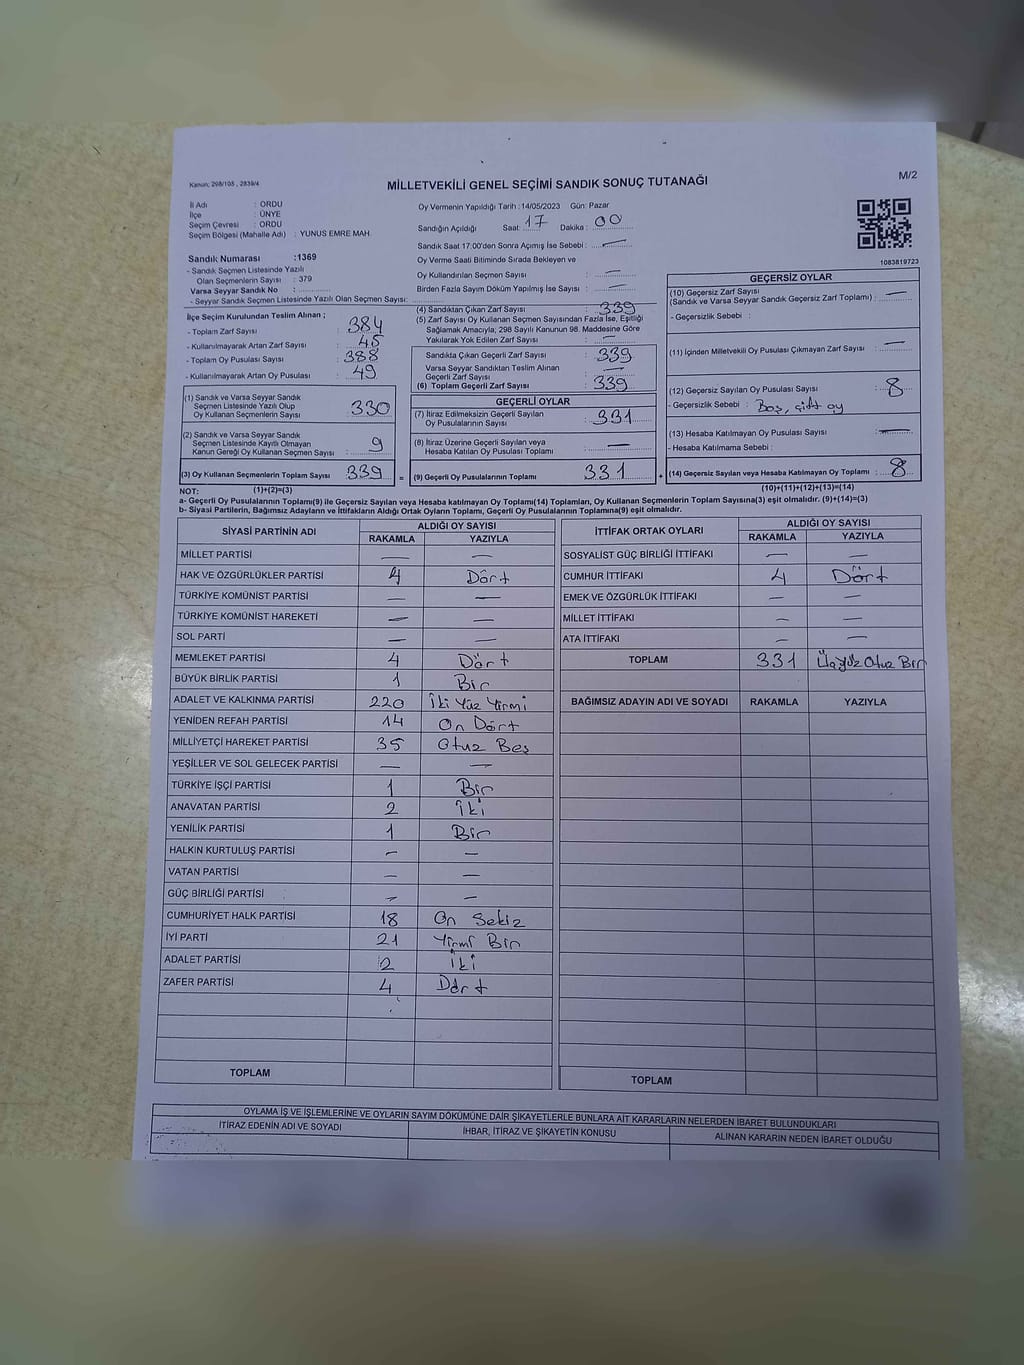 Kanun; 298/105 , 2839/4
MİLLETVEKİLİ GENEL SEÇİMİ SANDIK SONUÇ TUTANAĞI
M/2
İl Adı : ORDU
İlçe : ÜNYE
Seçim Çevresi : ORDU
Seçim Bölgesi (Mahalle Adı) : YUNUS EMRE MAH.
Oy Vermenin Yapıldığı Tarih :14/05/2023 Gün: Pazar
Sandığın Açıldığı Saat: 17 Dakika : 00
Sandık Saat 17:00'den Sonra Açımış İse Sebebi : —
Oy Verme Saati Bitiminde Sırada Bekleyen ve
Oy Kullandırılan Seçmen Sayısı : —
Birden Fazla Sayım Döküm Yapılmış İse Sayısı : —
1083819723
Sandık Numarası :1369
- Sandık Seçmen Listesinde Yazılı
Olan Seçmenlerin Sayısı : 379
Varsa Seyyar Sandık No :
- Seyyar Sandık Seçmen Listesinde Yazılı Olan Seçmen Sayısı:
İlçe Seçim Kurulundan Teslim Alınan ;
- Toplam Zarf Sayısı : 384
- Kullanılmayarak Artan Zarf Sayısı : 45
- Toplam Oy Pusulası Sayısı : 388
- Kullanılmayarak Artan Oy Pusulası : 49
(1) Sandık ve Varsa Seyyar Sandık
Seçmen Listesinde Yazılı Olup
Oy Kullanan Seçmenlerin Sayısı : 330
(2) Sandık ve Varsa Seyyar Sandık
Seçmen Listesinde Kayıtlı Olmayan
Kanun Gereği Oy Kullanan Seçmen Sayısı : 9
(3) Oy Kullanan Seçmenlerin Toplam Sayısı : 339 =
(4) Sandıktan Çıkan Zarf Sayısı : 339
(5) Zarf Sayısı Oy Kullanan Seçmen Sayısından Fazla İse, Eşitliği
Sağlamak Amacıyla, 298 Sayılı Kanunun 98. Maddesine Göre
Yakılarak Yok Edilen Zarf Sayısı : —
Sandıkta Çıkan Geçerli Zarf Sayısı : 339
Varsa Seyyar Sandıktan Teslim Alınan
Geçerli Zarf Sayısı : —
(6) Toplam Geçerli Zarf Sayısı : 339
GEÇERLİ OYLAR
(7) İtiraz Edilmeksizin Geçerli Sayılan
Oy Pusulalarının Sayısı : 331
(8) İtiraz Üzerine Geçerli Sayılan veya
Hesaba Katılan Oy Pusulası Toplamı : —
(9) Geçerli Oy Pusulalarının Toplamı : 331 +
GEÇERSİZ OYLAR
(10) Geçersiz Zarf Sayısı
(Sandık ve Varsa Seyyar Sandık Geçersiz Zarf Toplamı) : —
- Geçersizlik Sebebi :
(11) İçinden Milletvekili Oy Pusulası Çıkmayan Zarf Sayısı : —
(12) Geçersiz Sayılan Oy Pusulası Sayısı : 8
- Geçersizlik Sebebi : Boş, çift oy
(13) Hesaba Katılmayan Oy Pusulası Sayısı : —
- Hesaba Katılmama Sebebi :
(14) Geçersiz Sayılan veya Hesaba Katılmayan Oy Toplamı : 8
NOT: (1)+(2)=(3)
(10)+(11)+(12)+(13)=(14)
a- Geçerli Oy Pusulalarının Toplamı(9) ile Geçersiz Sayılan veya Hesaba katılmayan Oy Toplam(14) Toplamları, Oy Kullanan Seçmenlerin Toplam Sayısına(3) eşit olmalıdır. (9)+(14)=(3)
b- Siyasi Partilerin, Bağımsız Adayların ve İttifakların Aldığı Ortak Oyların Toplamı, Geçerli Oy Pusulalarının Toplamına(9) eşit olmalıdır.
SİYASİ PARTİNİN ADI ALDIĞI OY SAYISI
RAKAMLA YAZIYLA
MİLLET PARTİSİ — —
HAK VE ÖZGÜRLÜKLER PARTİSİ 4 Dört
TÜRKİYE KOMÜNİST PARTİSİ — —
TÜRKİYE KOMÜNİST HAREKETİ — —
SOL PARTİ — —
MEMLEKET PARTİSİ 4 Dört
BÜYÜK BİRLİK PARTİSİ 1 Bir
ADALET VE KALKINMA PARTİSİ 220 İki Yüz Yirmi
YENİDEN REFAH PARTİSİ 14 On Dört
MİLLİYETÇİ HAREKET PARTİSİ 35 Otuz Beş
YEŞİLLER VE SOL GELECEK PARTİSİ — —
TÜRKİYE İŞÇİ PARTİSİ 1 Bir
ANAVATAN PARTİSİ 2 İki
YENİLİK PARTİSİ 1 Bir
HALKIN KURTULUŞ PARTİSİ — —
VATAN PARTİSİ — —
GÜÇ BİRLİĞİ PARTİSİ — —
CUMHURİYET HALK PARTİSİ 18 On Sekiz
İYİ PARTİ 21 Yirmi Bir
ADALET PARTİSİ 2 İki
ZAFER PARTİSİ 4 Dört
TOPLAM
İTTİFAK ORTAK OYLARI ALDIĞI OY SAYISI
RAKAMLA YAZIYLA
SOSYALİST GÜÇ BİRLİĞİ İTTİFAKI — —
CUMHUR İTTİFAKI 4 Dört
EMEK VE ÖZGÜRLÜK İTTİFAKI — —
MİLLET İTTİFAKI — —
ATA İTTİFAKI — —
TOPLAM 331 Üçyüz Otuz Bir
BAĞIMSIZ ADAYIN ADI VE SOYADI RAKAMLA YAZIYLA
TOPLAM
OYLAMA İŞ VE İŞLEMLERİNE VE OYLARIN SAYIM DÖKÜMÜNE DAİR ŞİKAYETLERLE BUNLARA AİT KARARLARIN NELERDEN İBARET BULUNDUKLARI
İTİRAZ EDENİN ADI VE SOYADI İHBAR, İTİRAZ VE ŞİKAYETİN KONUSU ALINAN KARARIN NEDEN İBARET OLDUĞU